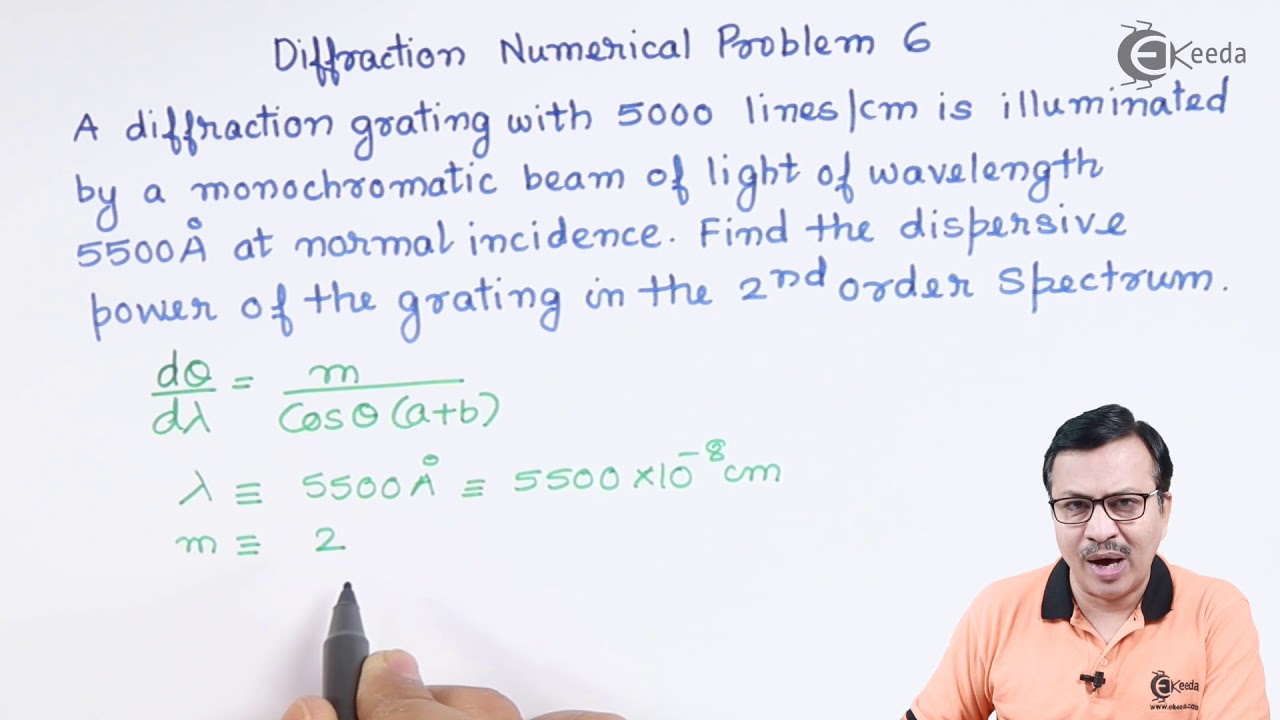 Diffraction Numerical Problem 6
EKeeda
A diffraction grating with 5000 lines/cm is illuminated
by a monochromatic beam of light of wavelength
5500Å at normal incidence. Find the dispersive
power of the grating in the 2nd order spectrum.
dθ/dλ = m/(Cosθ(a+b))
λ ≡ 5500Å ≡ 5500×10⁻⁸cm
m ≡ 2
EKeeda
www.ekeeda.com